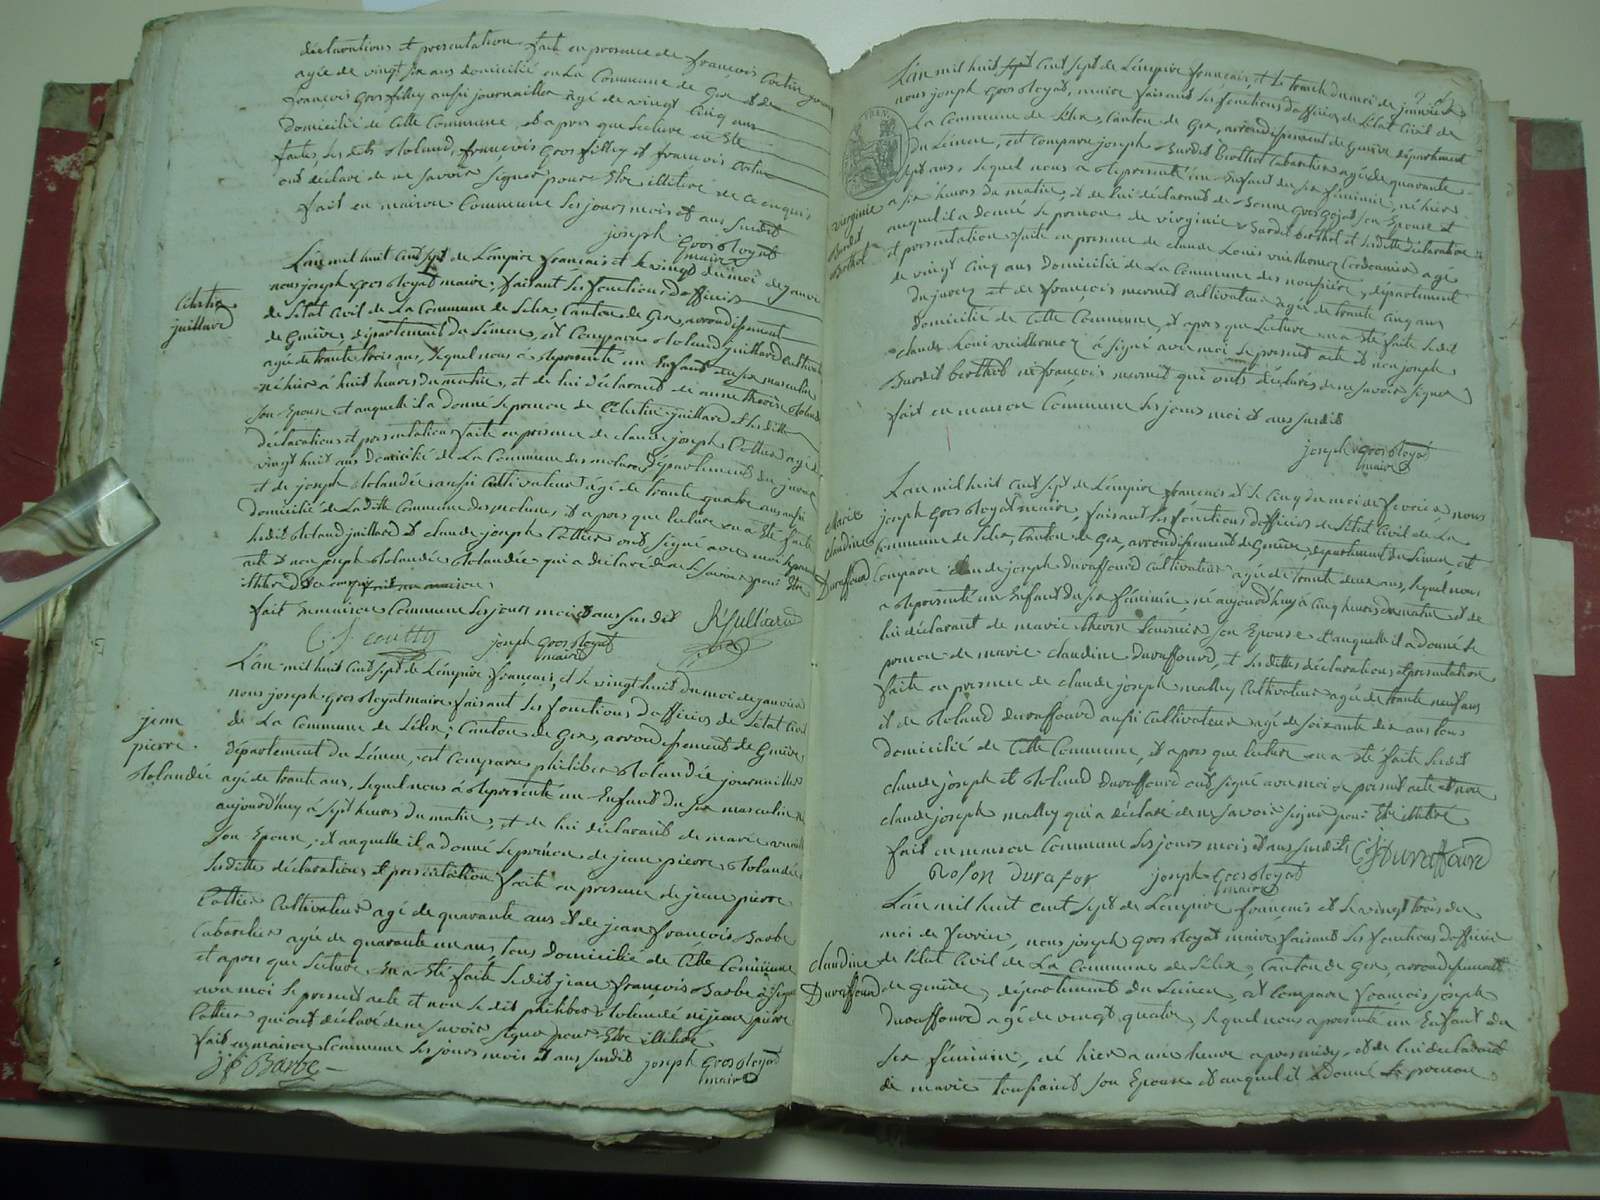 déclarations et presentation fait en presence de françois
agée de vingt six ans domicilié en La Commune de Gex et de
françois Grosfilley aussi journaillier agé de vingt Cinq ans
domicilié de Cette Commune, et apres que Lecture en Ete
faite, Les dits Roland, françois Grosfilley et francois
ont déclaré de ne savoir Signer pour Etre illiteré de ce enquis
fait en maison Commune Les jours mois et ans Susdit
joseph Grosroyat
maire
L'an mil huit Cent Sept de L'émpire français et le vingt du moi de janvier
nous joseph Grosroyat maire, faisant Les fonctions d'officier
de L'état Civil de La Commune de Lélex, Canton de Gex, arrondissement
de Genève, département du Léman, est Comparu Roland juillard Cultivateur
Celestin
juillard
agée de trante trois ans, Lequel nous à Représenté un Enfant du sex masculin
né hier à huit heures du matin, et de lui déclarant de anne
Son Epouse et auquelle il a donné Le prenon de Celestin juillard et Les dittes
déclarations et presentation faite en presence de claude joseph Cottier agé de
vingt huit ans domicilié de La Commune des molunes, département du jura
et de joseph Rolandée aussi Cultivateur agé de trante quatre ans aussi
domicilié de La ditte Commune des molunes, et apres que lecture en a Eté faite
Ledit Roland juillard et claude joseph Cottier ont Signé avec moi Le present
acte et non joseph Rolandée Rolandée qui a déclaré de ne Savoir pour Etre
fait en maison Commune Les jours mois et ans Susdit
R juilliard
joseph Grosroyat
maire
L'an mil huit Cent Sept de L'émpire français, et le vingt huit du moi de janvier
nous joseph Grosroyat maire faisant Les fonctions d'officier de L'état Civil
de La Commune de Lélex, Canton de Gex, arrondissement de Genève,
jean
pierre
Rolandée
département du Léman, est Comparu philiber Rolandée journaillier
agé de trante ans, Lequel nous à Représenté un Enfant du sex masculin né
aujourd'huy à Sept heures du matin, et de lui déclarant de marie
Son Epouse, et auquelle il a donné Le prénon de jean pierre Rolandée
Les dittes déclarations et presentation faite en presence de jean pierre
Cottier Cultivateur agé de quarante ans et de jean françois Barbe
Cabaretier agée de quarante un ans, tous domicilié de Cette Commune
et apres que Lecture En a Eté faite Ledit jean françois Barbe à Signé
avec moi Le present acte et non Ledit philiber Rolandée ni jean pierre
Cottier qui ont déclaré de ne Savoir Signer pour Etre illiteré
fait en maison Commune Les jours mois et ans Susdit joseph Grosroyat
maire
jf Barbe
L'an mil huit Cent Sept de L'émpire français, et le trante du moi de janvier
nous joseph Grosroyat, maire faisant Les fonctions d'officier de L'état Civil de
La Commune de Lélex, Canton de Gex, arrondissement de Genève département
du Léman, est Comparu joseph Burdet berthod Cabaretier agé de quarante
Sept ans, Lequel nous à Représenté un Enfant du sex féminin, né hier
à six heures du matin, et de lui déclarant de Grosgojat son Epouse et
Virginie
Burdet
Berthod
auquel il a donné Le prenon de virginie Burdet berthod et Les ditte déclaration
et presentation faite en presence de claude Louis vuillermoz Cordonnier agé
de vingt Cinq ans domicilié de La Commune des moussières, département
du jura, et de françois mermet Cultivateur agée de trante Cinq ans
domicilié de Cette Commune, et apres que Lecture en a Eté faite Le dit
claude Loui vuillermoz à Signé avec moi Le present acte et non joseph
Burdet berthod ni françois mermet qui onts déclarés de ne savoir Signer
fait en maison Commune Les jours moi et ans Susdit
joseph Grosroyat
maire
L'an mil huit Cent Sept de L'émpire français et le Cinq du moi de fevrier, nous
joseph Grosroyat maire, faisant Les fonctions d'officier de L'état Civil de La
Marie
claudine
Duraffourd
Commune de Lélex, Canton de Gex, arrondissement de Genève, département du Léman, est
Comparu claude joseph Duraffourd Cultivateur agée de trante deux ans, Lequel nous
a Représenté un Enfant du sex féminin, né aujourd'huy à Cinq heures du matin et de
lui déclarant de marie Son Epouse d'auquelle il a donné Le
prenon de marie claudine Duraffourd, et Les dittes déclarations et presentation
faite en presence de claude joseph mathey Cultivateur agée de trante neuf ans
et de Roland Duraffourd aussi Cultivateur agé de Soixante dix ans tous
domicilié de Cette Commune, et apres que lecture en a Eté faite Ledit
claude joseph et Roland Duraffourd ont Signé avec moi Le present acte et non
claude joseph mathey qui a déclaré de ne savoir Signer pour Etre illiteré
fait en maison Commune Les jours mois et ans Susdit CJ Duraffourd
Rolon Durafor joseph Grosroyat
maire
L'an mil huit Cent Sept de L'émpire français et le vingt trois du
moi de fevrier, nous joseph Grosroyat maire faisant Les fonctions d'officier
claudine
Duraffourd
de L'état Civil de La Commune de Lélex, Canton de Gex, arrondissement
de Genève, département du Léman, est Comparu françois joseph
Duraffourd agé de vingt quatre, Lequel nous a presenté un Enfant du
Sex féminin, né hier a une heure apres midy, et de lui déclarant
de marie toussaint Son Epouse et auquel il a donné Le prenon